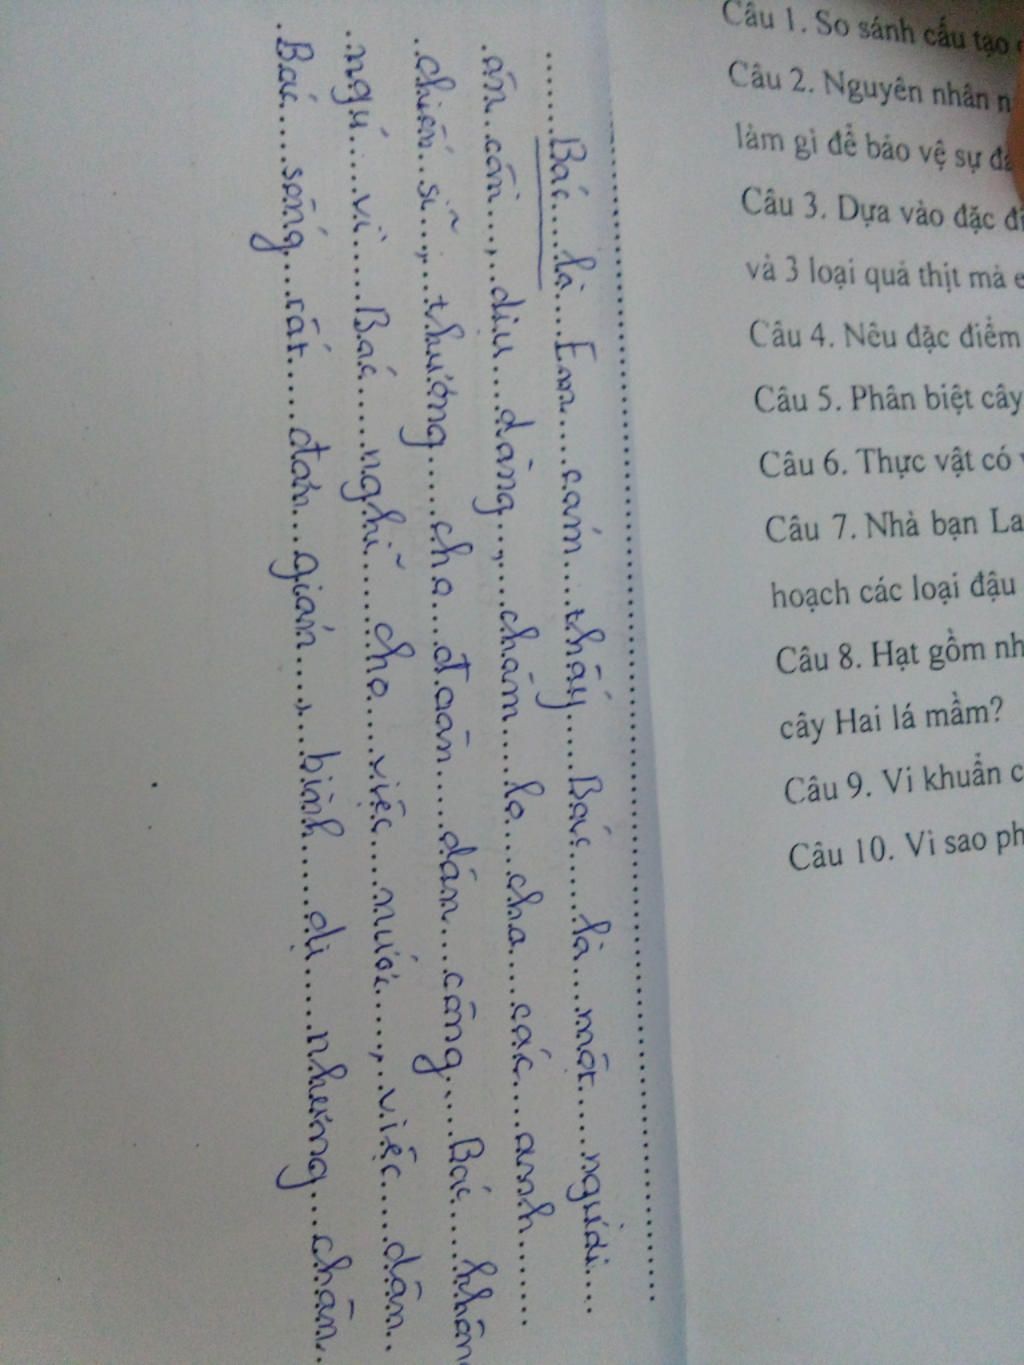 Bác là Em cảm thấy Bác là một người
ân cần, dịu dàng, chăm lo cho các anh
chiến sĩ, thương cho đoàn dân công Bác không
ngủ vì Bác nghĩ cho việc nước, việc dân.
Bác sống rất đơn giản, bình dị nhưng chân
Câu 1. So sánh cấu tạo
Câu 2. Nguyên nhân
làm gì để bảo vệ sự
Câu 3. Dựa vào đặc
và 3 loại quả thịt mà
Câu 4. Nêu đặc điểm
Câu 5. Phân biệt cây
Câu 6. Thực vật có
Câu 7. Nhà bạn La
hoạch các loại đậu
Câu 8. Hạt gồm
cây Hai lá mầm?
Câu 9. Vi khuẩn
Câu 10. Vì sao